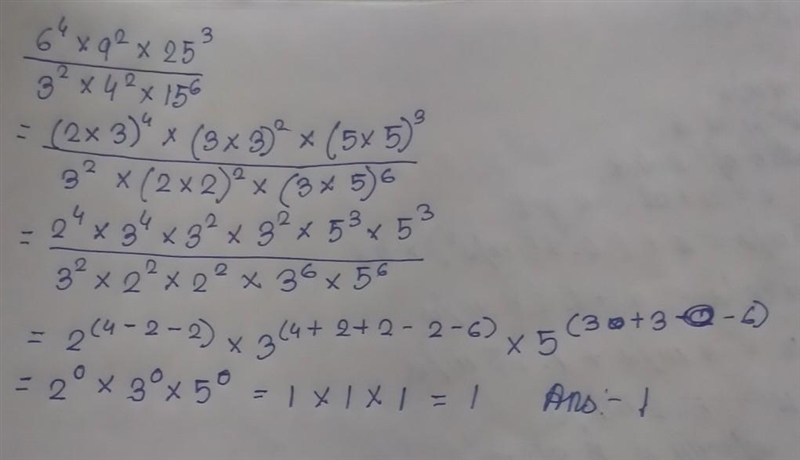 6⁴ × 9² × 25³
3² × 4² × 15⁶
= (2 × 3)⁴ × (3 × 3)² × (5 × 5)³
3² × (2 × 2)² × (3 × 5)⁶
= 2⁴ × 3⁴ × 3² × 3² × 5³ × 5³
3² × 2² × 2² × 3⁶ × 5⁶
= 2^(4 - 2 - 2) × 3^(4 + 2 + 2 - 2 - 6) × 5^(3 + 3 - 6)
= 2⁰ × 3⁰ × 5⁰ = 1 × 1 × 1 = 1 Ans:- 1